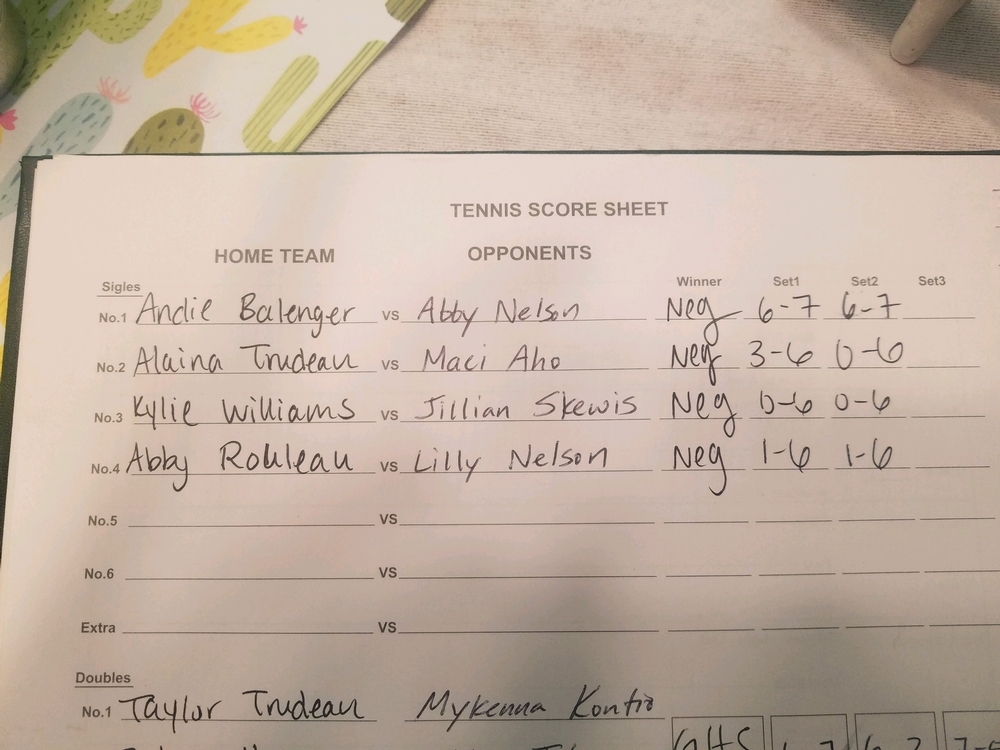 TENNIS SCORE SHEET
HOME TEAM OPPONENTS
Sigles Winner Set1 Set2 Set3
No.1 Andie Balenger vs Abby Nelson Neg 6-7 6-7
No.2 Alaina Trudeau vs Maci Aho Neg 3-6 0-6
No.3 Kylie Williams vs Jillian Skewis Neg 0-6 0-6
No.4 Abby Rouleau vs Lilly Nelson Neg 1-6 1-6
No.5 VS
No.6 VS
Extra VS
Doubles
No.1 Taylor Trudeau Mykenna Kontio
GHS